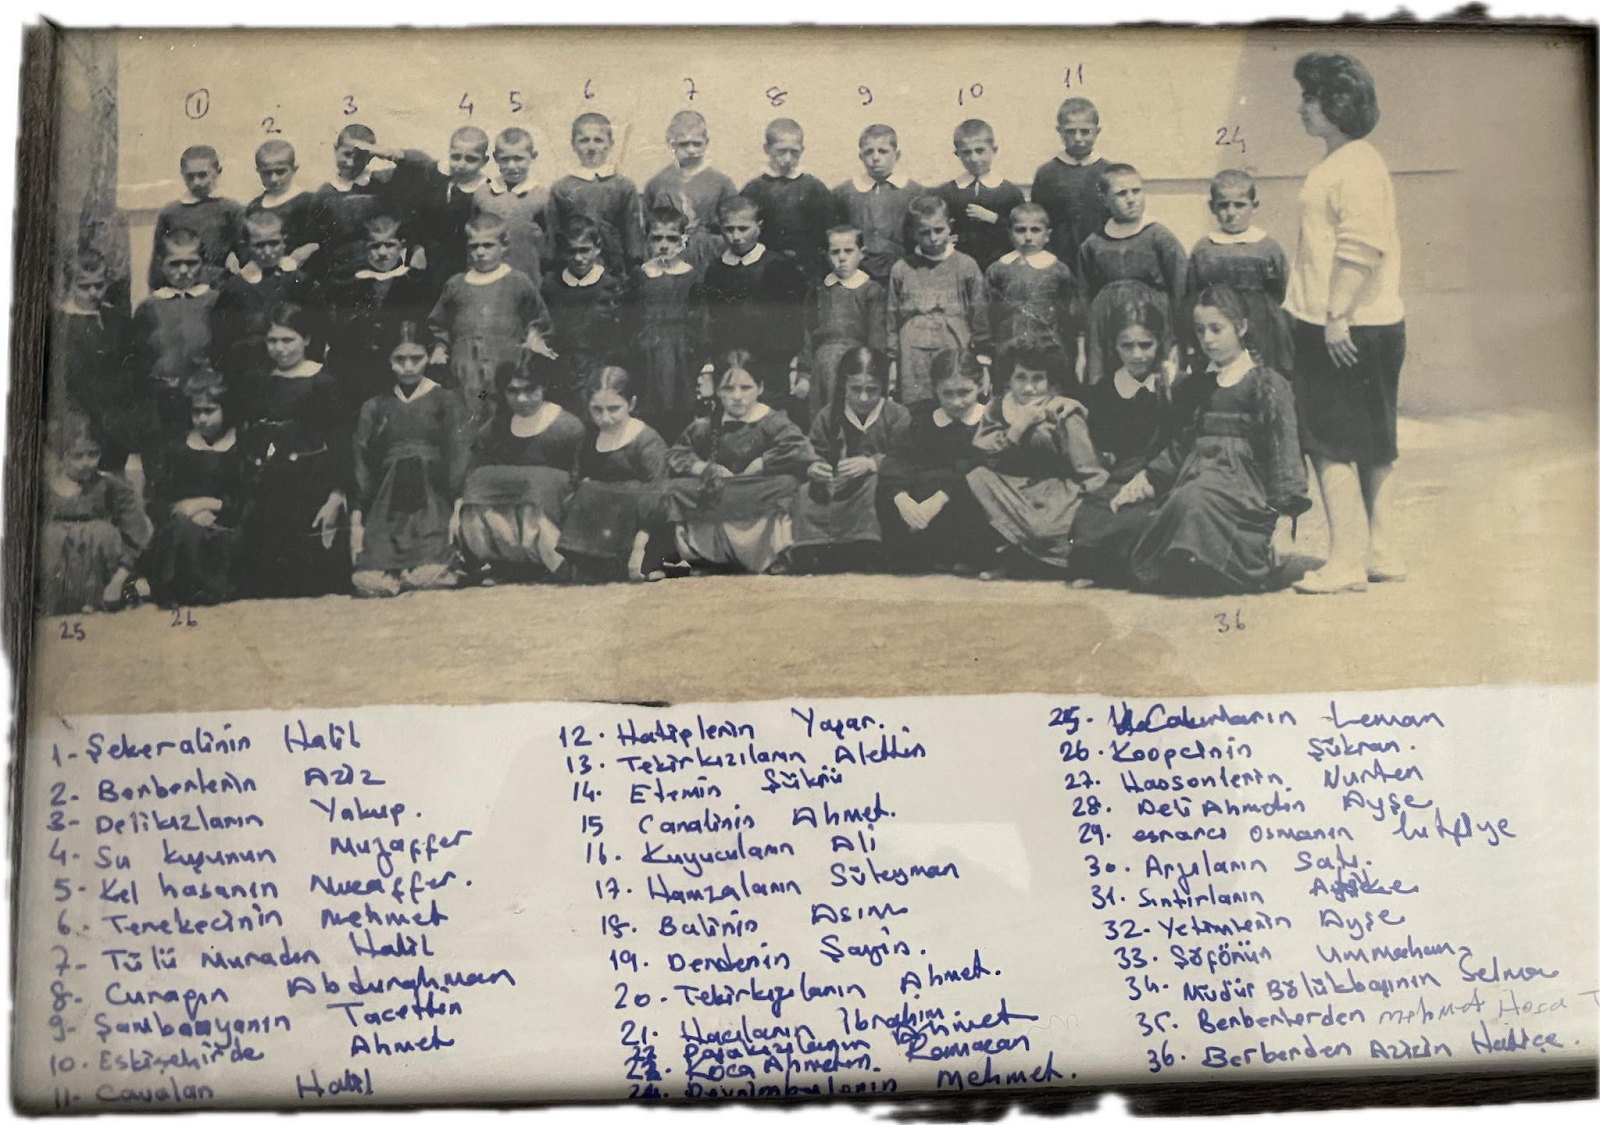 1 2 3 4 5 6 7 8 9 10 11
24
25 26 36
1- Şekeralinin Halil
2- Berberlerin Aziz
3- Delikızların Yakup.
4- Su kuşunun Muzaffer
5- Kel hasanın Muzaffer.
6- Tenekecinin Mehmet
7- Tülü Muradın Halil
8- Abdurrahman
9- Tacettin
10. Eskişehir'de Ahmet
11- Halil
12. Hatiplerin Yaşar.
13. Tekirkızların Alettin
14. Etemin Şükrü
15 Canalinin Ahmet.
16. Kuyucuların Ali
17. Hamzaların Süleyman
18. Balinin Asım
19. Dendenin Şayin.
20. Tekirkızların Ahmet.
21. Hacıların İbrahim
22 Ahmet
23. Koca Ahmetin Ramazan
24. Mehmet.
25. Leman
26. Koopcinin Şükran.
27. Hassonlerin Nurten
28. Deli Ahmdin Ayşe
29. esrarcı Osmanın Lutfiye
30. Satı.
31. Sıntırların
32. Yetimlerin Ayşe
33. Şöförün Ummahanı
34. Müdür Bölükbaşının Selma
35. Berberlerden Mehmet Hoca
36. Berberden Azizin Hatice.